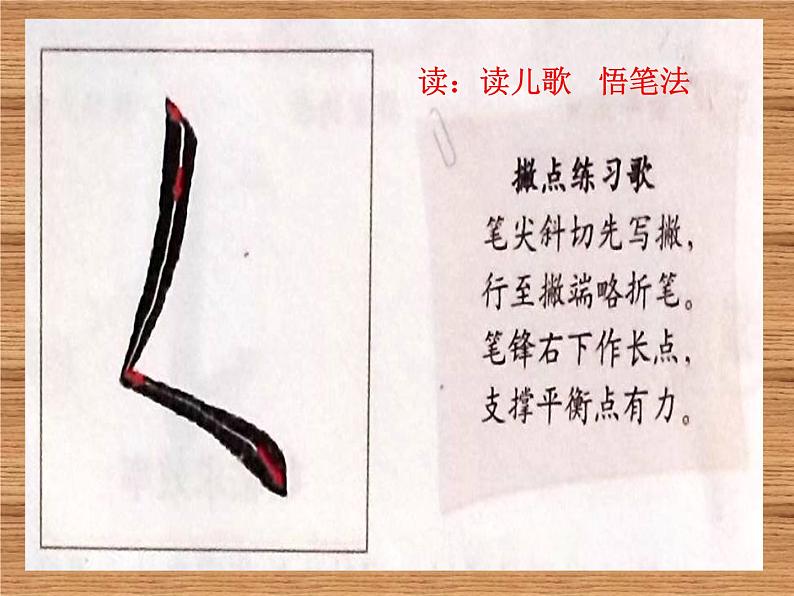 读：读儿歌 悟笔法
撇点练习歌
笔尖斜切先写撇，
行至撇端略折笔。
笔锋右下作长点，
支撑平衡点有力。